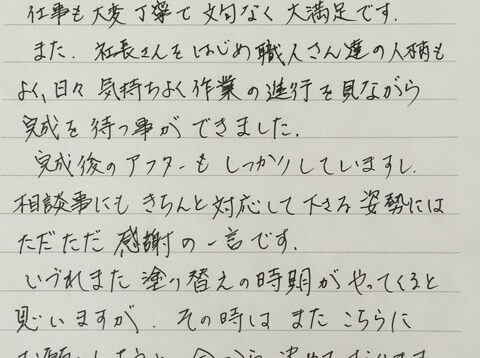 仕事も大変丁寧で文句なく大満足です.
また. 社長さんをはじめ職人さん達の人柄も
よく、日々気持ちよく作業の進行を見ながら
完成を待つ事ができました.
完成後のアフターもしっかりしていますし.
相談事にもきちんと対応して下さる姿勢には
ただただ感謝の一言です.
いづれまた塗り替えの時期がやってくると
思いますが. その時はまたこちらに